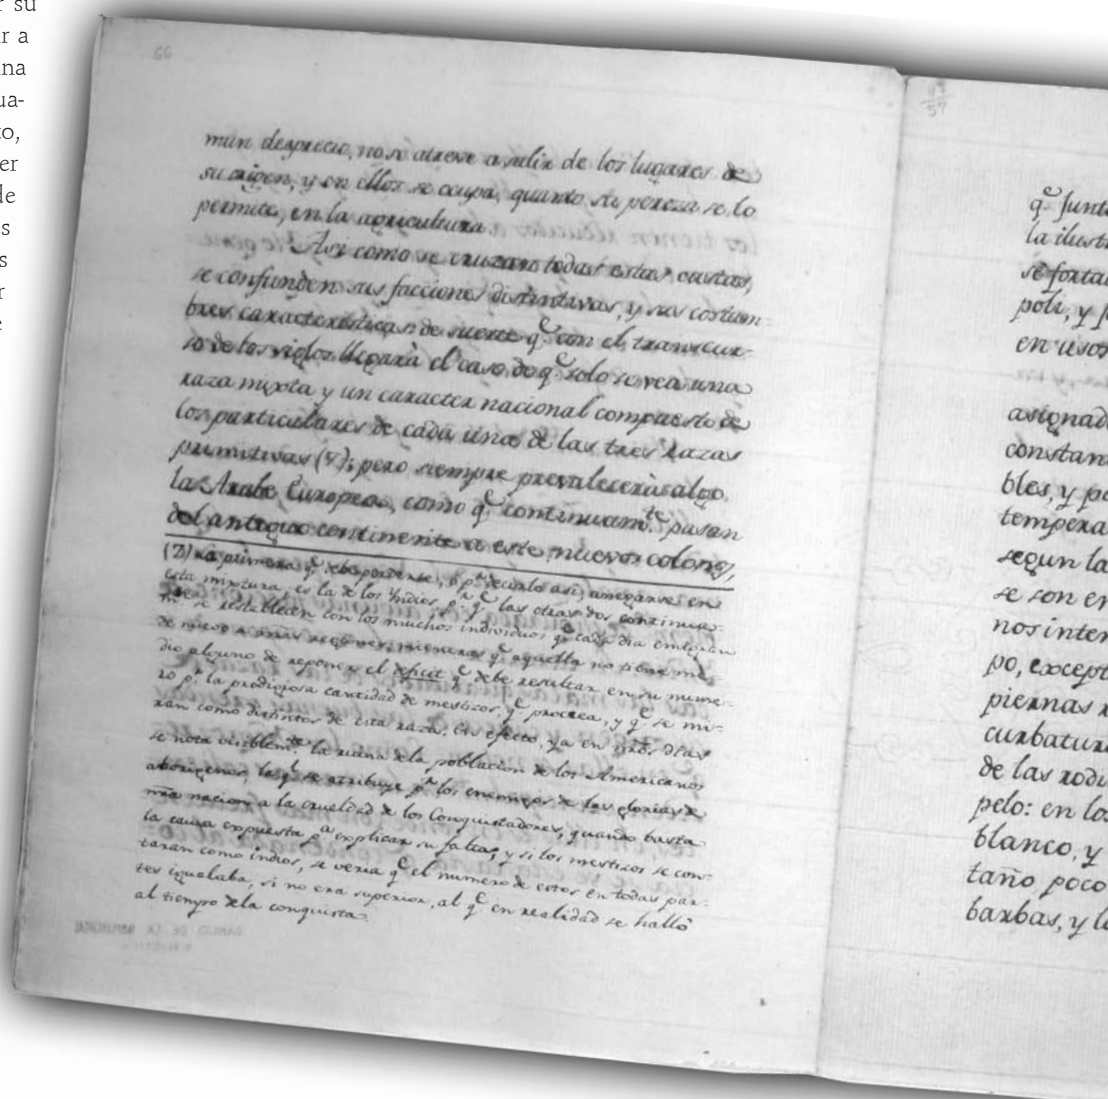 r su
ar a
una
ua-
to,
er
de
s
s
r
e
66
mun desprecio, no se atreve a salir de los lugares de
su origen, y en ellos se ocupa, quanto su pereza se lo
permite, en la agricultura.
Asi como se cruzan todas estas castas,
se confunden sus facciones distintivas, y sus costum-
bres caracteristicas de suerte q.e con el transcur-
so de los siglos llegarà el caso de q.e solo se vea una
raza mixta y un caracter nacional compuesto de
los particulares de cada una de las tres razas
primitivas (7); pero siempre prevalecerà algo
la Arabe Europea, como q.e continuam.te pasan
del antiguo continente a este nuevos colonos,
(7) La primera q.e debe perderse, ò p.r decirlo asi, anegarse en
esta mixtura, es la de los Yndios, p.r q.e las otras dos continua-
m.te se restablecen con los muchos individuos q.e cada dia emigran
de nuevo a estas regiones, mientras q.e aquella no tiene me-
dio alguno de reponer el deficit q.e debe resultar en su nume-
ro p.r la prodigiosa cantidad de mestizos q.e procrea, y q.e se mi-
ran como distintos de esta raza. En efecto, ya en estos dias
se nota visiblem.te la ruina dela poblacion de los Americanos
aborigenes, la q.e se atribuye p.r los enemigos de las glorias de
nra nacion a la crueldad de los Conquistadores, quando basta
la causa expuesta p.a explicar su falta; y si los mestizos se con-
taran como indios, se veria q.e el numero de estos en todas par-
tes igualaba, si no era superior, al q.e en realidad se hallò
al tiempo dela conquista.
57
q.e junt
la ilust
se forta
poli, y
en usos
asignad
constan
bles, y p
tempera
segun la
se son en
nos inter
po, except
piernas
curbatur
de las rodi
pelo: en los
blanco, y
taño, poco
barbas, y l